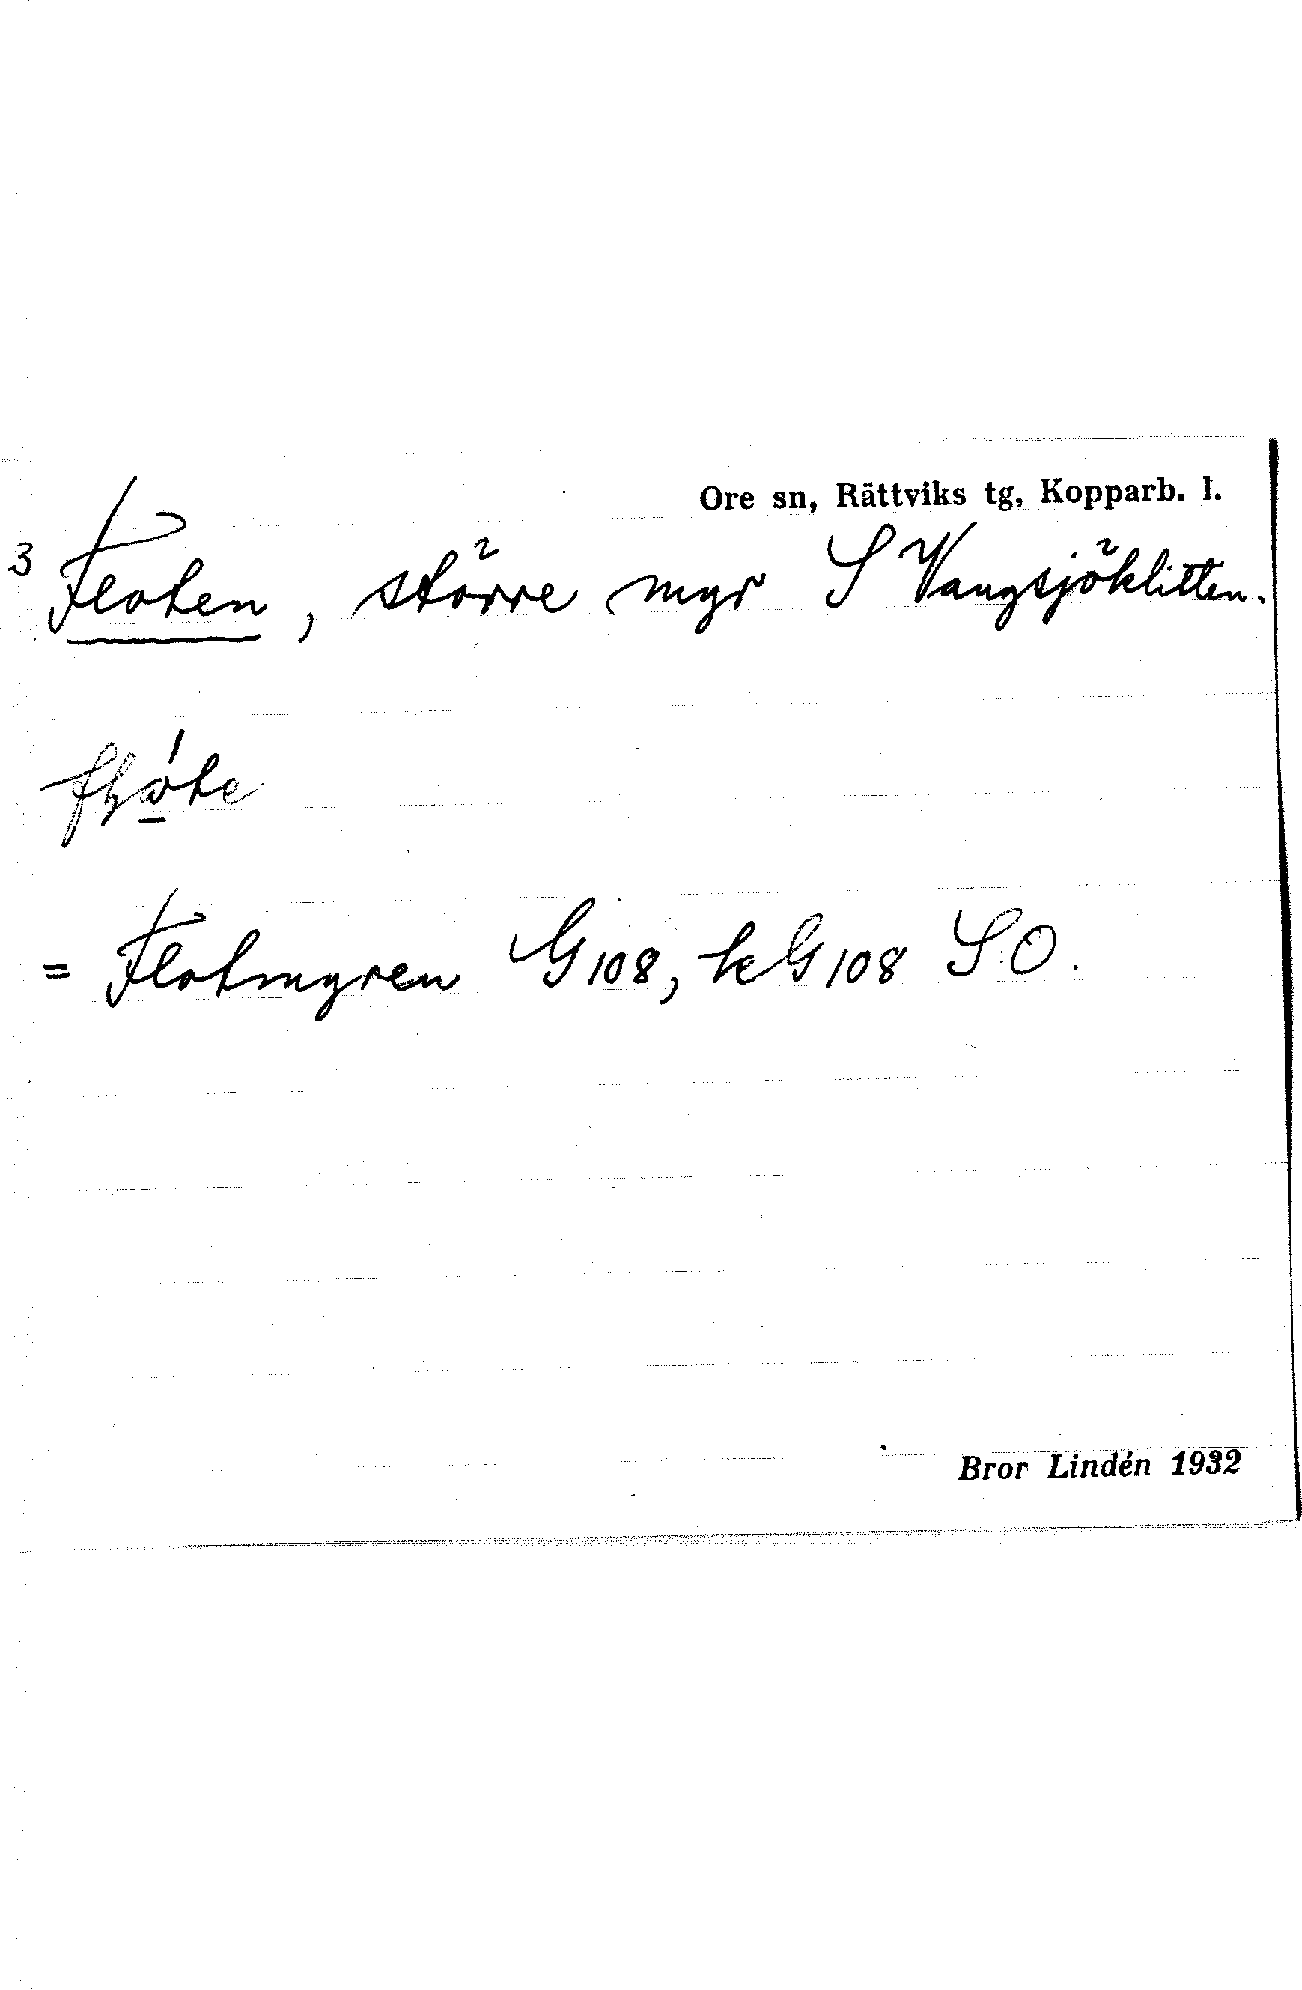 Ore sn, Rättviks tg, Kopparb. l.
3 Floten, större myr S Vangsjöklitten.
= Flotmyren G108, kG108 SO.
Bror Lindén 1932